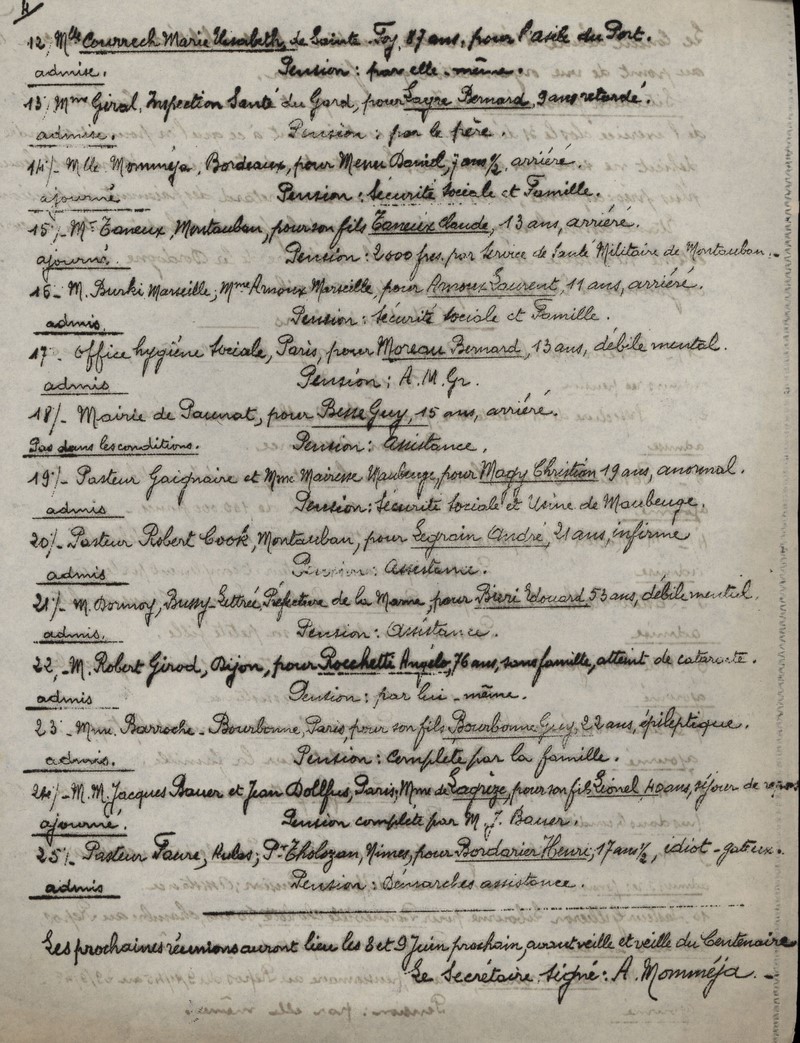 4
12, Mlle Courrech Marie Elisabeth, de Sainte-Foy, 87 ans, pour l'asile du Port.
admise. Pension : par elle-même.
13/- Mme Giral, Inspection Santé du Gard, pour Fayre Bernard, 9 ans retardé.
admise. Pension : par le frère.
14/- Mlle Momméja, Bordeaux, pour Menu Daniel, 7 ans ½, arriéré.
ajourné Pension : Sécurité Sociale et Famille.
15/- Mr Taneux, Montauban, pour son fils Taneux Claude, 13 ans, arriéré.
ajourné. Pension : 2000 frs. par Service de Santé Militaire de Montauban.-
16- M. Burki Marseille, Mme Arnoux Marseille, pour Arnoux Laurent, 11 ans, arriéré.
admis. Pension : Sécurité Sociale et Famille.
17- Office hygiène Sociale, Paris, pour Moreau Bernard, 13 ans, débile mental.
admis Pension : A.M.Gr.
18/- Mairie de Paunat, pour Besse Guy, 15 ans, arriéré.
Pas dans les conditions. Pension : Assistance.
19/- Pasteur Gaignaire et Mme Mairesse Maubeuge, pour Magy Christian 19 ans, anormal.
admis Pension : Sécurité Sociale et Usine de Maubeuge.
20/- Pasteur Robert Cook, Montauban, pour Legrain André, 21 ans, infirme
admis Pension : Assistance.
21/- M. Dormoy, Bussy-Lettrée, Préfecture de la Marne, pour Bieri Edouard, 53 ans, débile mental.
admis. Pension : Assistance.
22,- M. Robert Girod, Dijon, pour Rocchetti Angélo, 76 ans, sans famille, atteint de cataracte.
admis Pension : par lui-même.
23- Mme. Barroche-Bourbonne, Paris, pour son fils Bourbonne Guy, 22 ans, épileptique.
admis. Pension : complète par la famille.
24/- M.M. Jacques Bauer et Jean Dollfus, Paris, Mme de Lagrèze, pour son fils Lionel, 40 ans, séjour de repos
ajourné. Pension complète par M. J. Bauer.
25/- Pasteur Faure, Aulas; Pr Tholozan, Nimes, pour Bordarier Henri, 17 ans ½, idiot-gateux.
admis Pension : Démarches assistance.
Les prochaines réunions auront lieu les 8 et 9 Juin prochain, avant veille et veille du Centenaire
Le Secrétaire Signé : A. Momméja.-